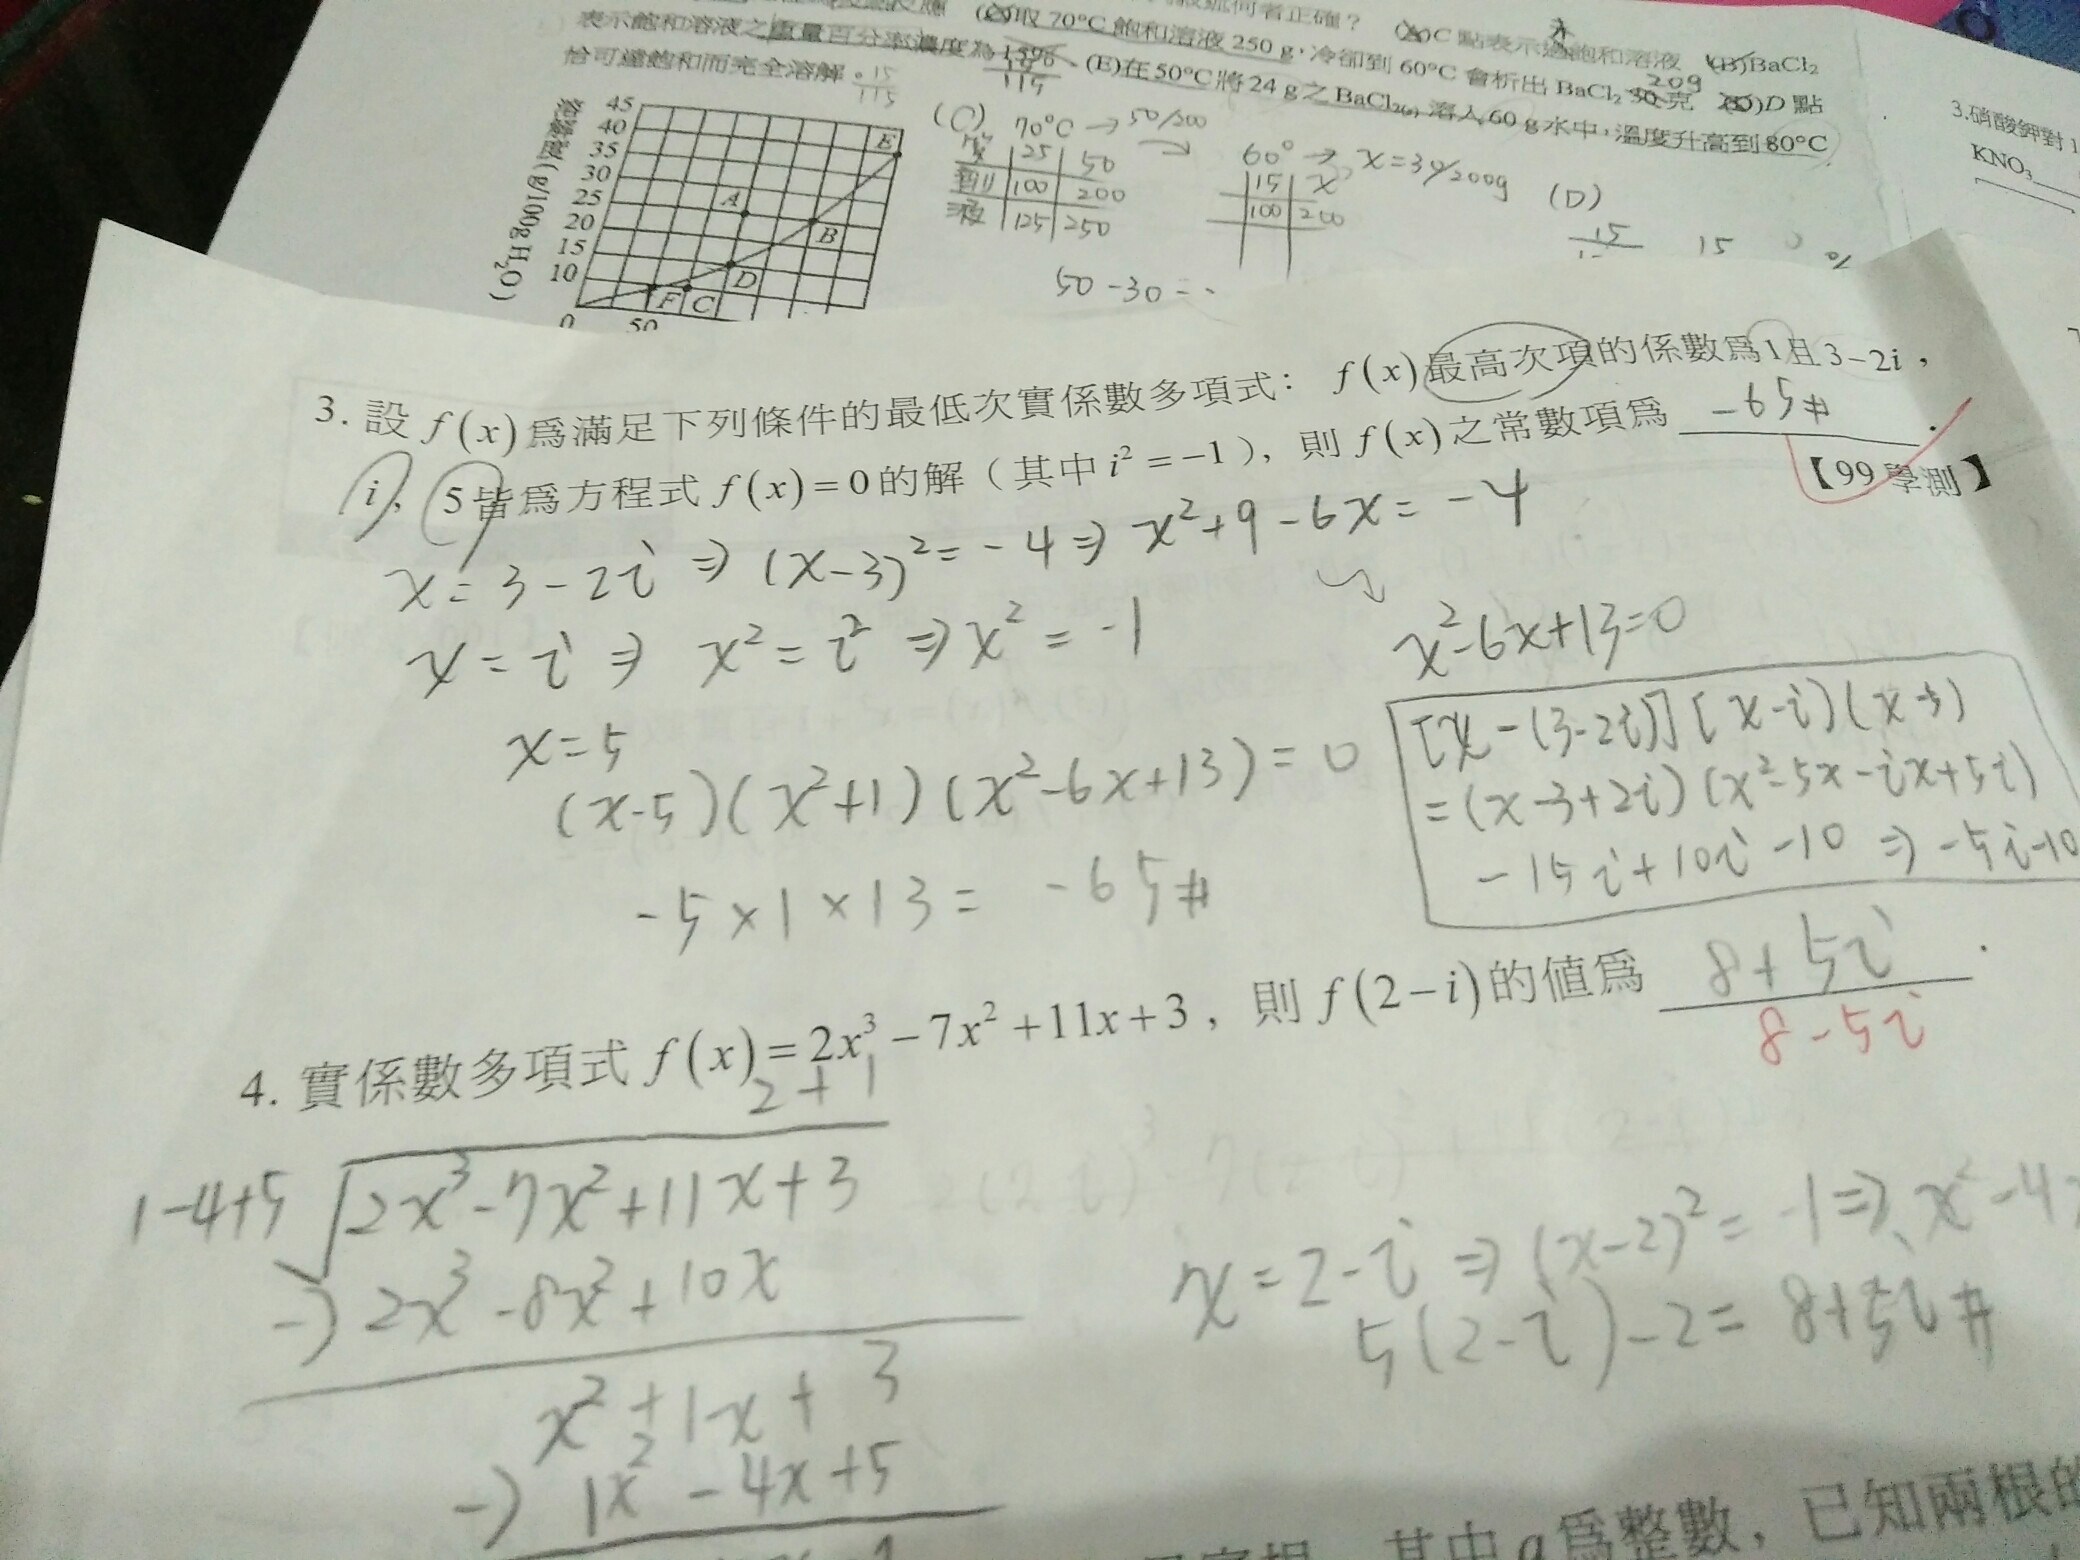 (C)取70°C飽和溶液250g,冷卻到60°C會析出BaCl₂ 50克
20g
(D) D點
表示飽和溶液之重量百分率濃度為15%
(E)在50°C將24 g之BaCl₂₍ₛ₎溶入60 g水中,溫度升高到80°C
恰可達飽和而完全溶解。
15
115
45
40
35
30
25
20
15
10
0
50
(g/100g H₂O)
A
B
C
D
E
F
(C) 70°C → 50/200
質 25 50
劑 100 200
液 125 250
60° → x=30/200g
15 x
100 200
50-30=
(D)
15
3.硝酸鉀對
KNO₃
3. 設 f(x) 爲滿足下列條件的最低次實係數多項式: f(x) 最高次項的係數爲1且3-2i,
i、5皆爲方程式 f(x)=0的解(其中 i²=-1),則 f(x)之常數項爲 -65#.
【99 學測】
x=3-2i ⇒ (x-3)²=-4 ⇒ x²+9-6x=-4
x²-6x+13=0
x=i ⇒ x²=i² ⇒ x²=-1
x=5
(x-5)(x²+1)(x²-6x+13)=0
-5×1×13= -65#
[x-(3-2i)][x-i)(x-5)
=(x-3+2i)(x²-5x-ix+5i)
-15i+10i-10 ⇒ -5i-10
4. 實係數多項式 f(x)=2x³-7x²+11x+3,則 f(2-i)的値爲 8+5i.
8-5i
2+1
1-4+5 √2x³-7x²+11x+3
-) 2x³-8x²+10x
x²+1x+3
-) 1x²-4x+5
x=2-i ⇒ (x-2)²=-1 ⇒ x²-4
5(2-i)-2= 8+5i#
其中a爲整數,已知兩根的